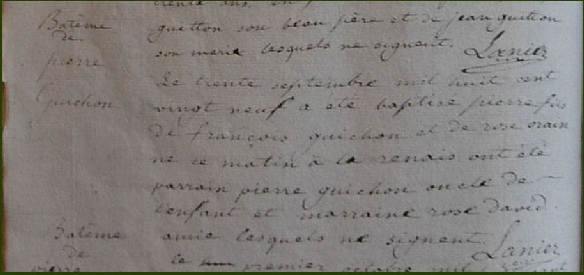 Batême
de
pierre
Guichon
guitton son beau père et de jean guitton
son marie lesquels ne signent. Lanier
Le trente septembre mil huit cent
vingt neuf a eté baptise pierre fils
de françois guichon et de rose orain
ne ce matin à la renais ont été
parrain pierre guichon oncle de
l'enfant et marraine rose david.
amie lesquels ne signent. Lanier
Batême
de
pierre
le premier octobre mil